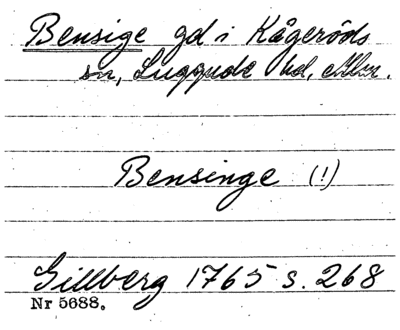 Bensige gd i Kågeröds
sn, Luggude hd, Mlm.
Bensinge (!)
Gillberg 1765 s. 268
Nr 5688.